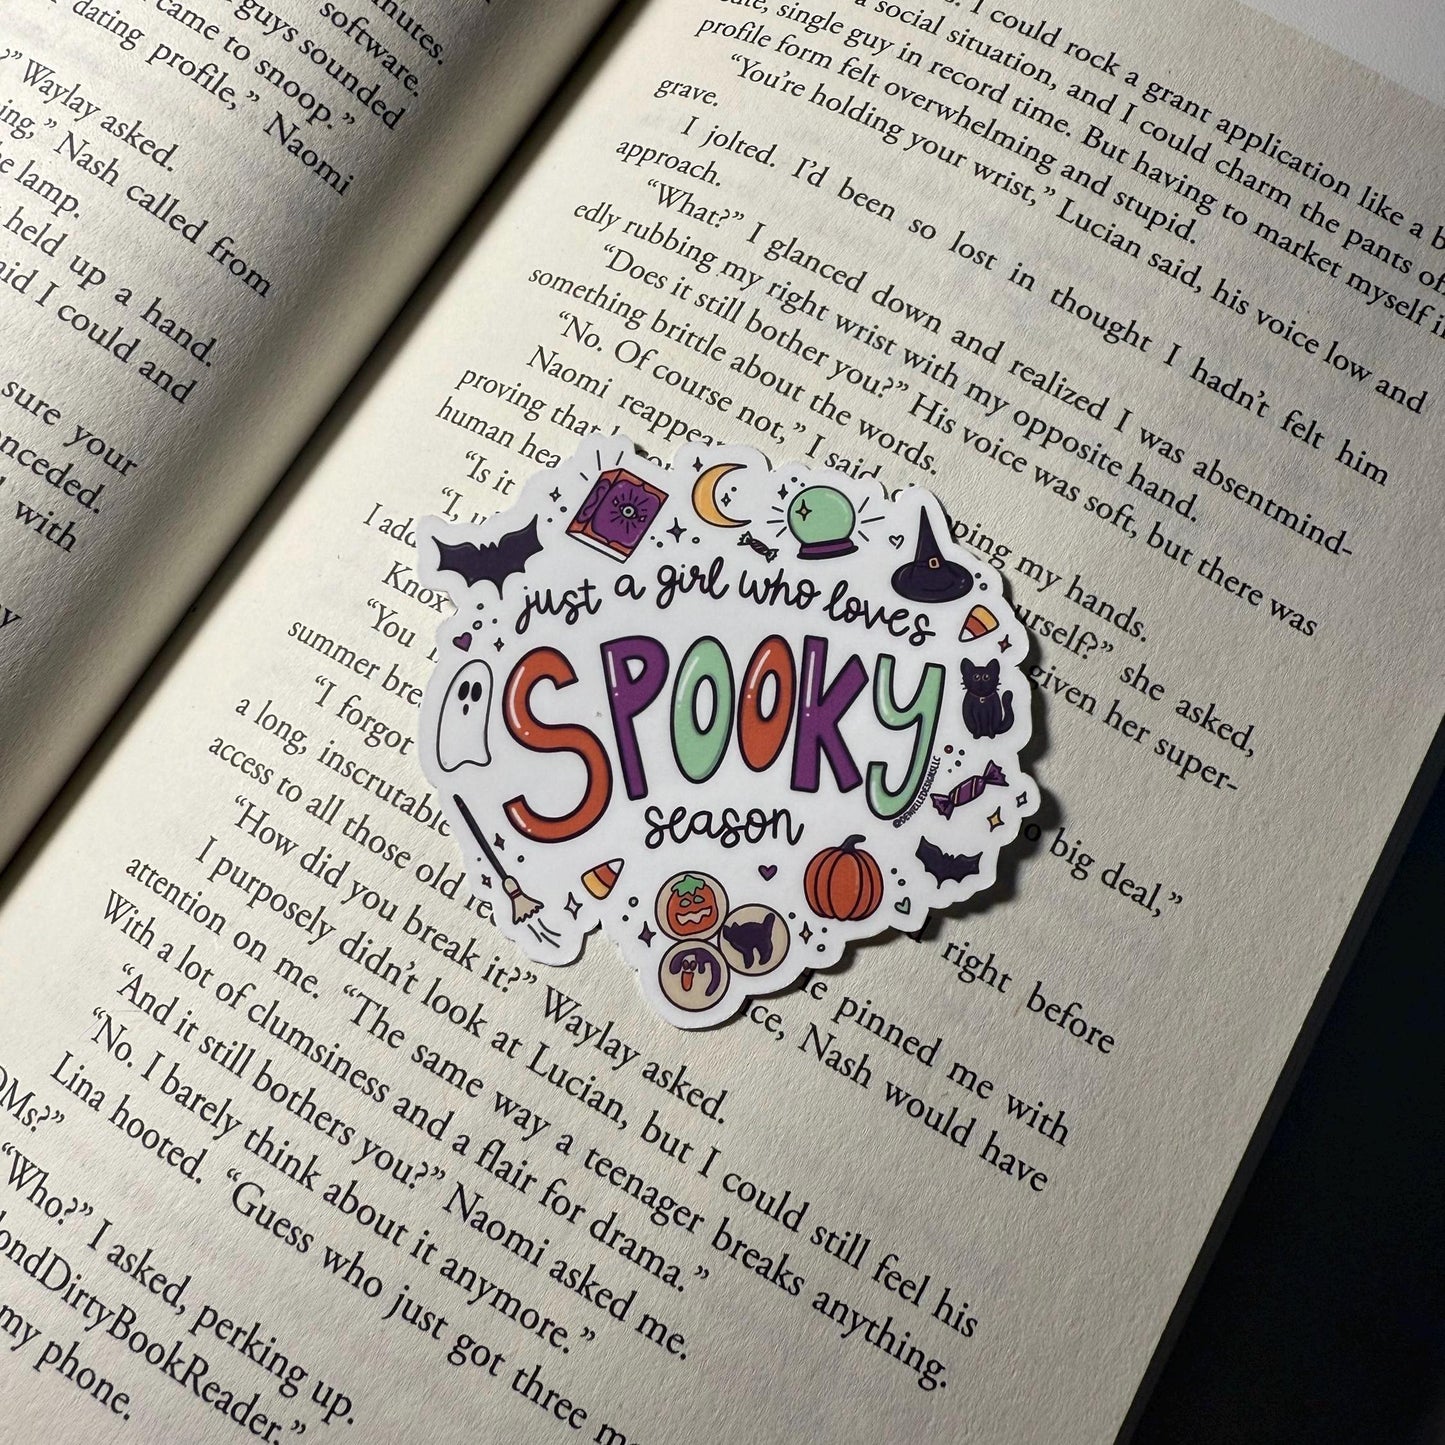 nutes.
software.
guys sounded
came to snoop.”
dating profile,” Naomi
?” Waylay asked.
ing,” Nash called from
he lamp.
held up a hand.
aid I could and
sure your
onceded.
with
I could rock a grant application like a b
a social situation, and I could charm the pants of
ate, single guy in record time. But having to market myself i
profile form felt overwhelming and stupid.
“You’re holding your wrist,” Lucian said, his voice low and
grave.
I jolted. I’d been so lost in thought I hadn’t felt him
approach.
“What?” I glanced down and realized I was absentmind-
edly rubbing my right wrist with my opposite hand.
“Does it still bother you?” His voice was soft, but there was
something brittle about the words.
“No. Of course not,” I said, ping my hands.
Naomi reappea urself?” she asked,
proving that given her super-
human hea
“Is it o big deal,”
“I, u
I add right before
Knox
“You he pinned me with
summer bre ice, Nash would have
“I forgot
a long, inscrutable
access to all those old re
“How did you break it?” Waylay asked.
I purposely didn’t look at Lucian, but I could still feel his
attention on me. “The same way a teenager breaks anything.
With a lot of clumsiness and a flair for drama.”
“And it still bothers you?” Naomi asked me.
“No. I barely think about it anymore.”
Lina hooted. “Guess who just got three
OMs?”
“Who?” I asked, perking up.
ondDirtyBookReader.”
my phone.
just a girl who loves
SPOOKY
season
@DENYELLEDESIGNSLLC